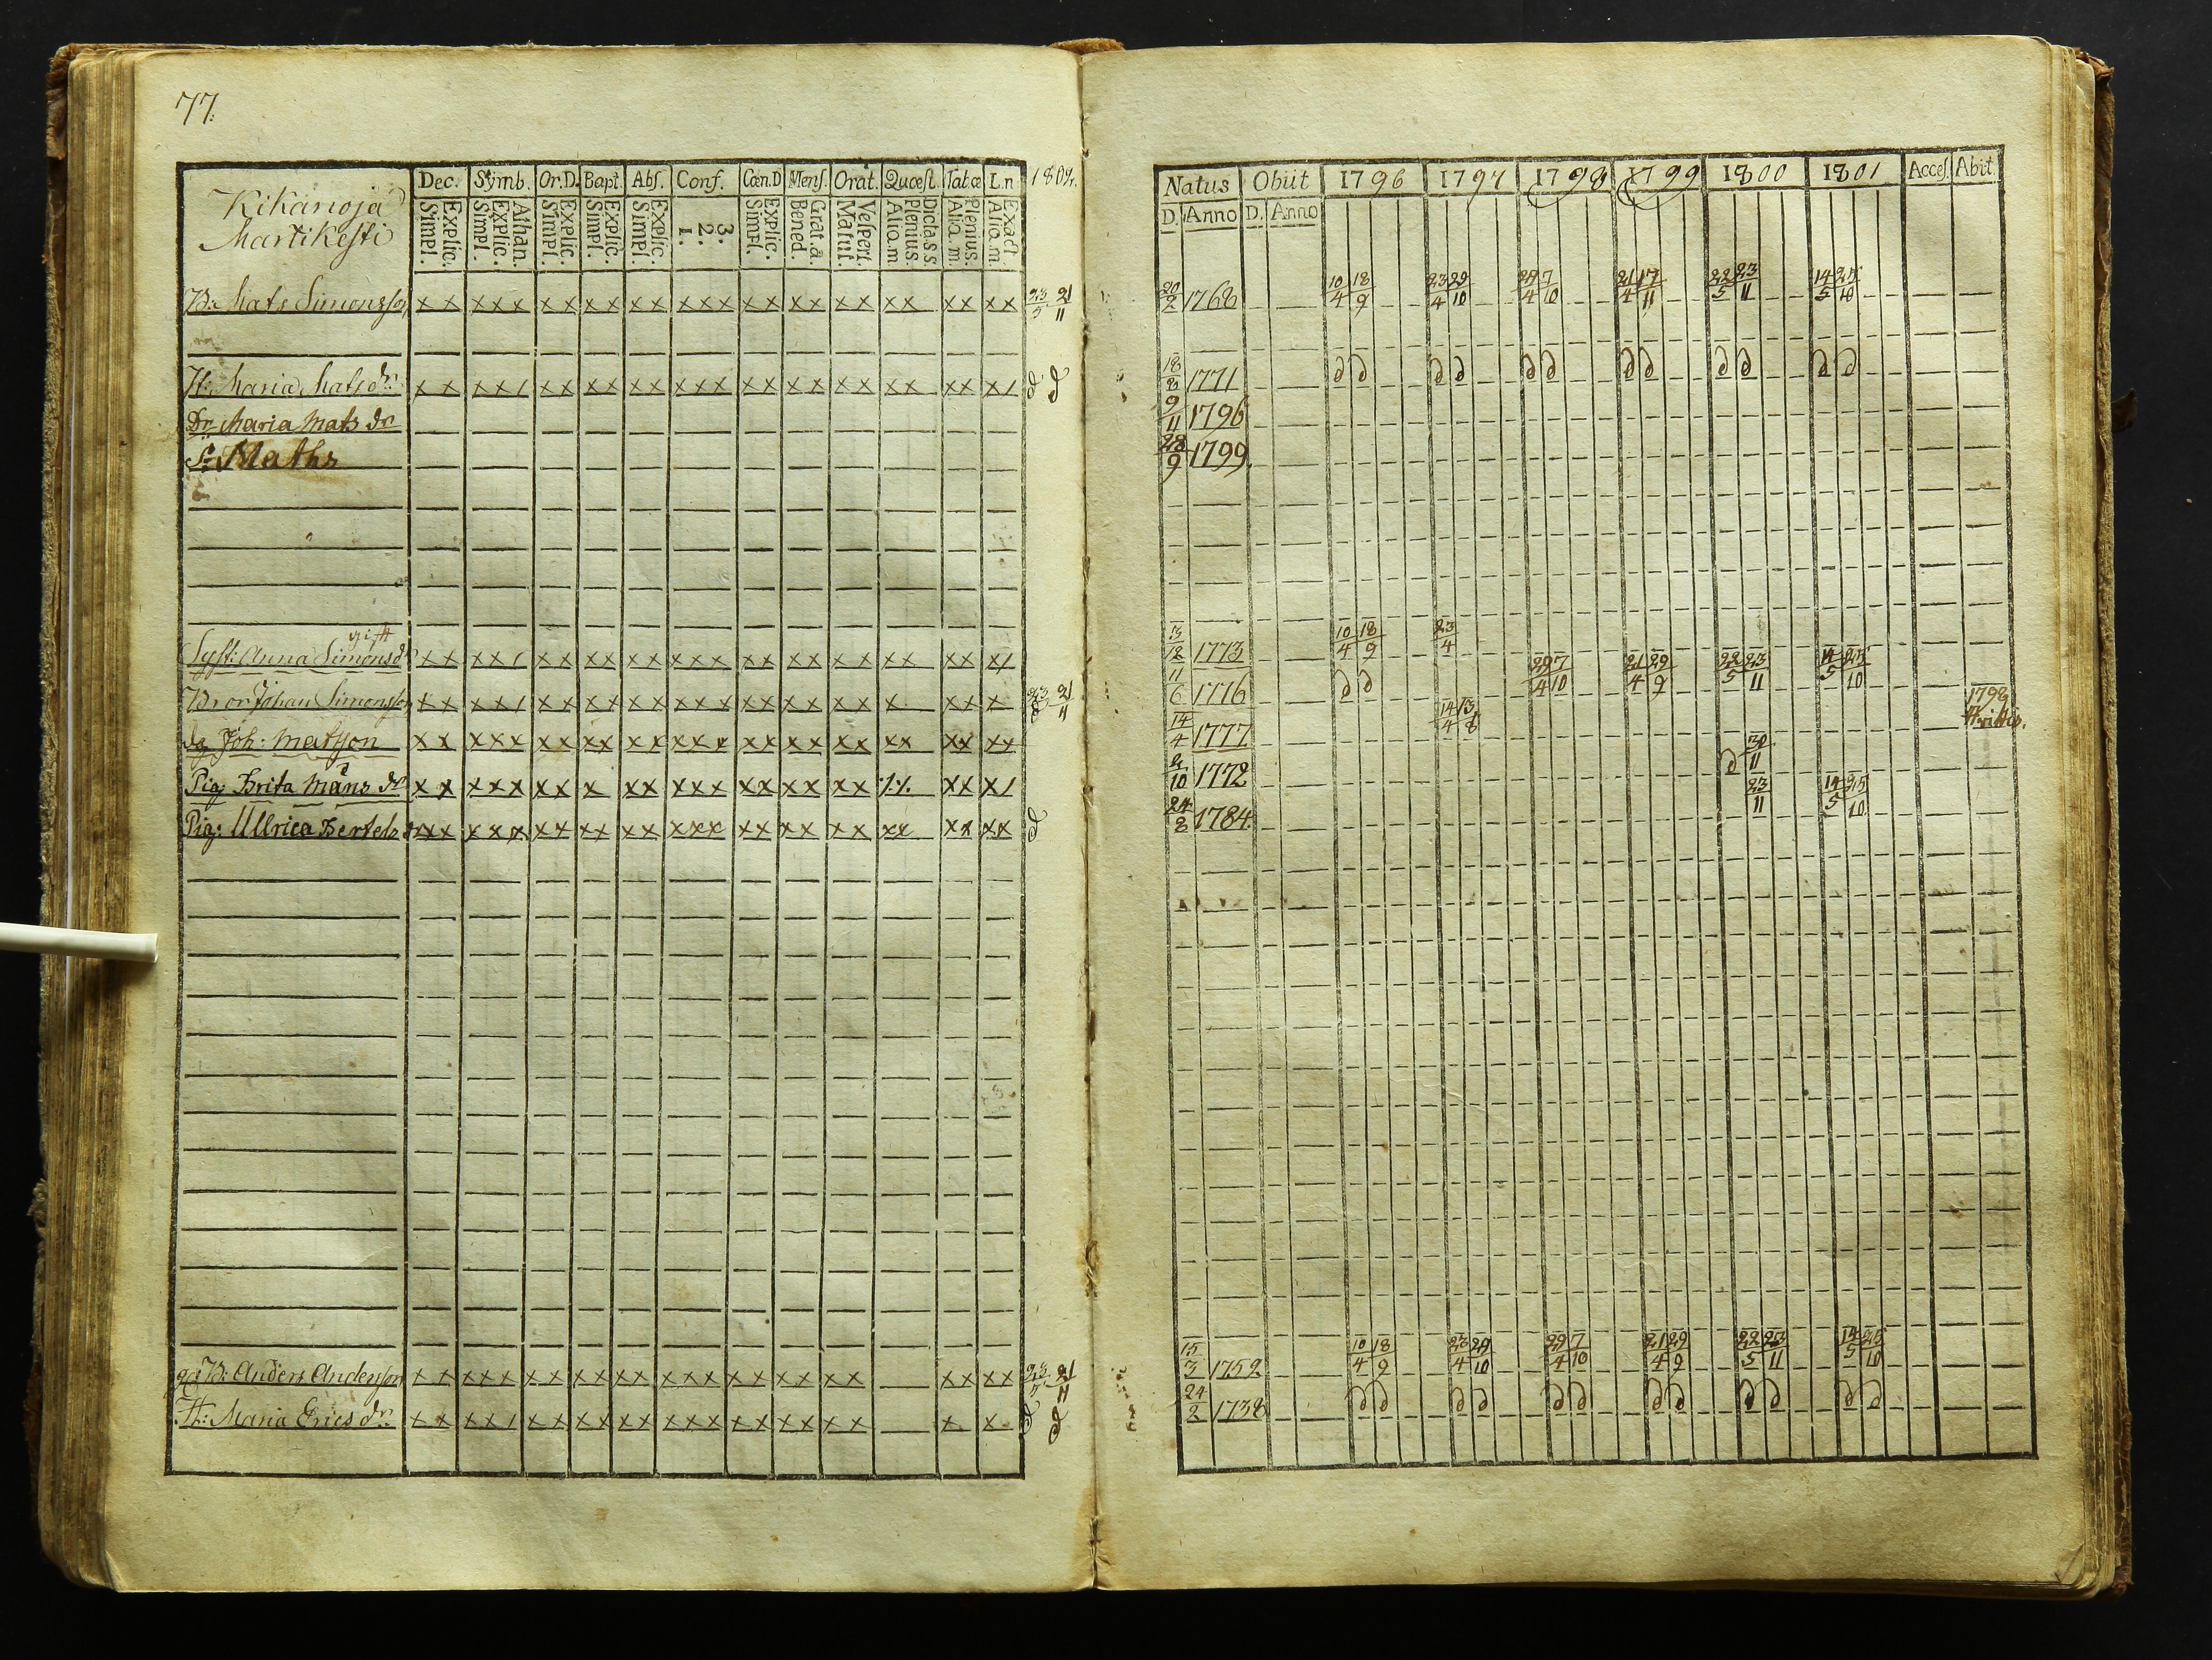 77.
Kikanoja
Martikessi
Dec. Symb. Or.D. Bapt. Abs. Conf. Cœn.D Mens. Orat. Quœst. Tabœ L.n
Explic. Simpl. Athan. Explic. Simpl. Explic. Simpl. Explic. Simpl. Explic. Simpl. 3. 2. 1. Explic. Simpl. Grat.a Bened. Vespert. Matut. Dicta s s Plenius. Alio.m Plenius. Aliq.m. Exact. Aliq.m.
B: Mats Simonsson x x x x x x x x x x x x x x x x x x x x x x x x x x x x 23/5 21/11
H: Maria Mats dr. x x x x / x x x x x x x x x x x x x x x x x x x x / d d
Dr Maria Mats dr
S: Maths
gift
Syst: Anna Simons dr x x x x / x x x x x x x x x x x x x x x x x x x x x /
Bror Johan Simonsson x x x x / x x x x x x x x x x x x x x x x x x x 21/11
Dg Joh: Matsson x x x x x x x x x x x x x x x x x x x x x x x x x x
Pig. Brita Måns dr x x x x x x x x x x x x x x x x x x x x ·/.·/. x x x /
Pig: Ullrica Bertels dr x x x x x x x x x x x x x x x x x x x x x x x x x x d
B: Anders Andersson x x x x x x x x x x x x x x x x x x x x x x x x 21/11
H: Maria Erics dr. x x x x / x x x x x x x x x x x x x x x x x x d
Natus Obiit 1796 1797 1798 1799 1800 1801 Acces. Abit
D. Anno D. Anno
20/2 1768 10/4 18/9 23/4 29/10 29/4 7/10 21/4 17/11 22/5 23/11 14/5 25/10
18/8 1771 d d d d d d d d d d d d
9/11 1796
28/9 1799.
1773 10/4 18/9 23/4
11/6 1776 d d 29/4 7/10 21/4 29/9 22/5 23/11 14/5 25/10
14/4 1777 14/4 13/8 1798
1772 d 11
24/8 1784. 23/11 14/5 25/10
15/3 1759 10/4 18/9 23/4 29/10 29/4 7/10 21/4 29/9 22/5 23/11 14/5 25/10
24/2 1738 d d d d d d d d d d d d